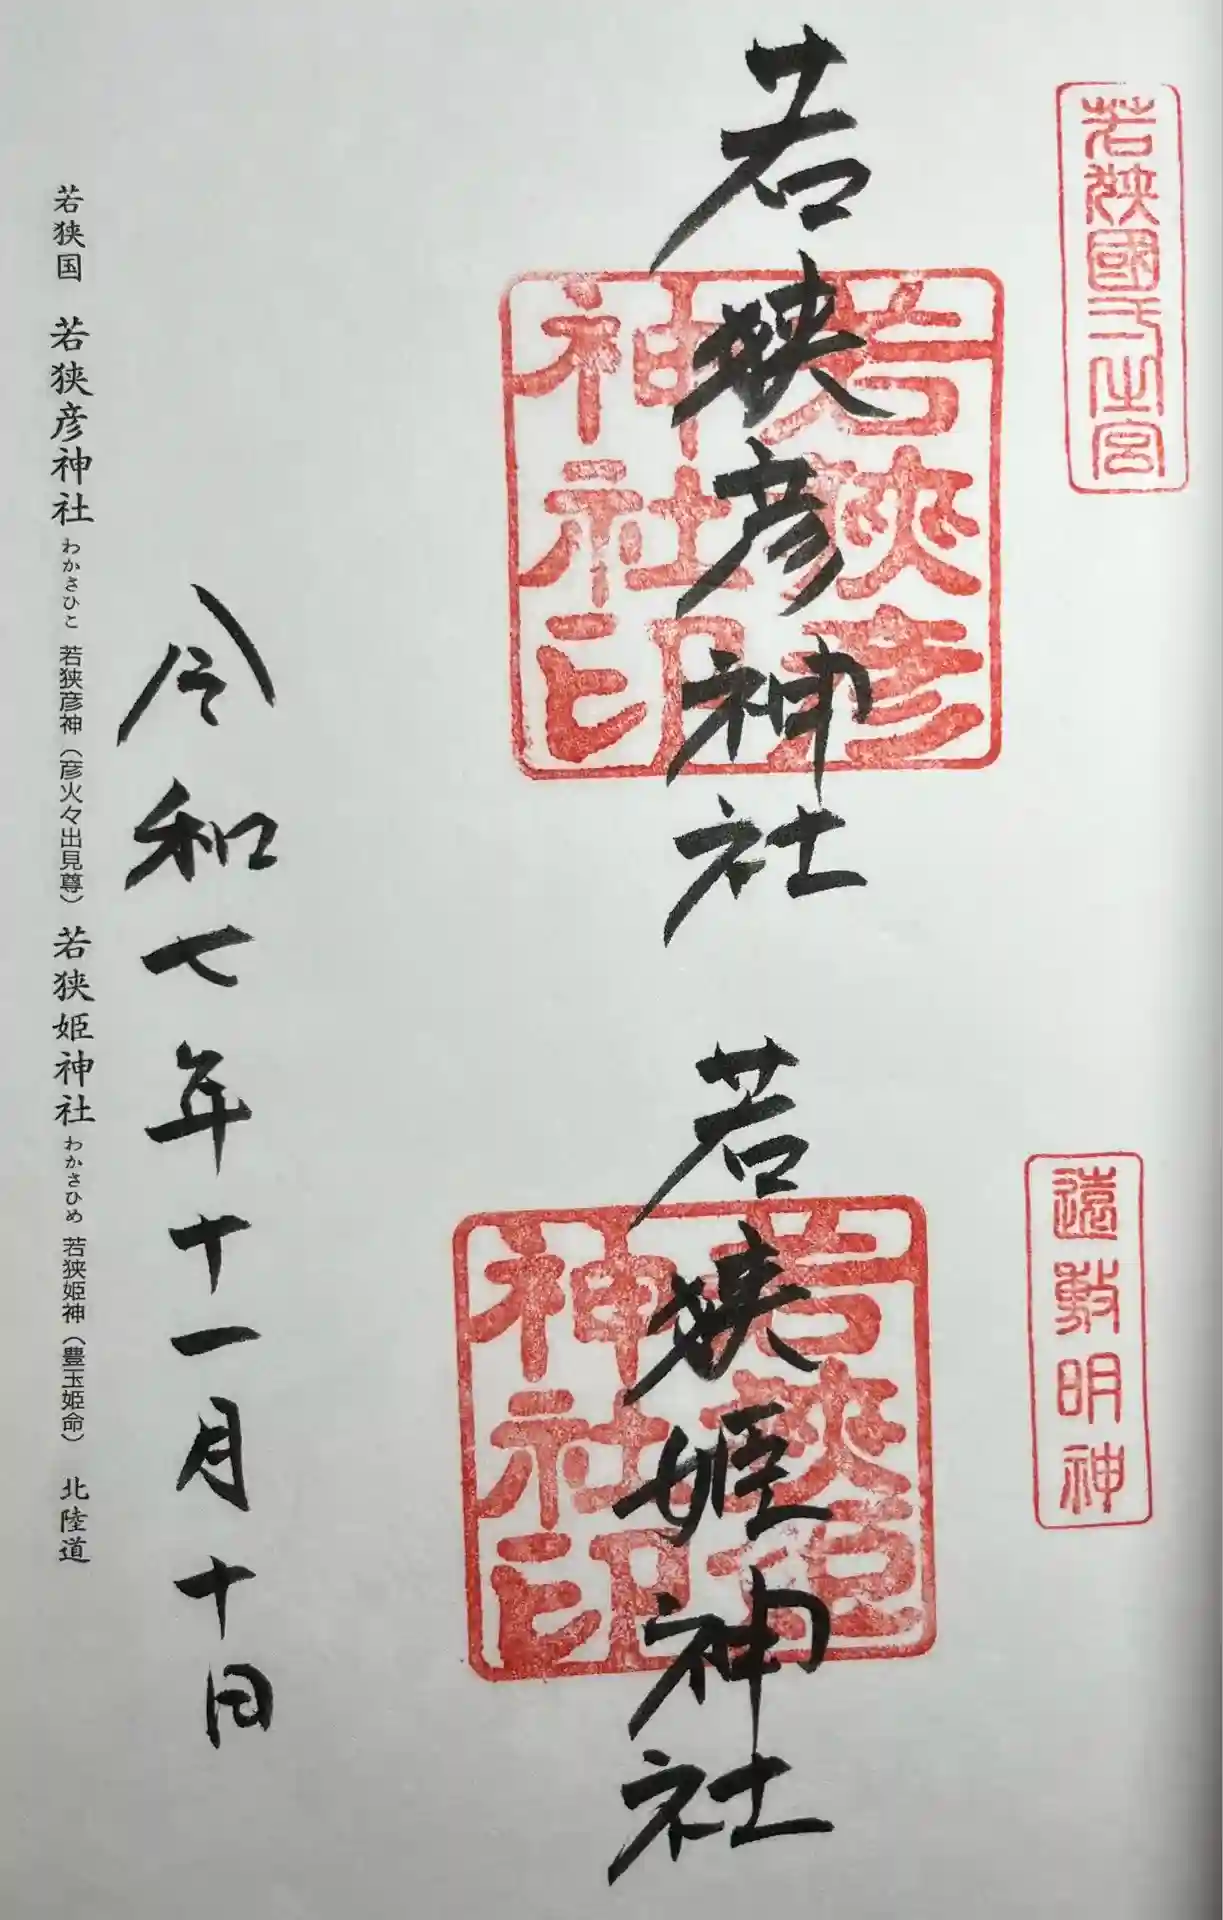 若狭國一之宮
遠敷明神
若狭彦神社
若狭彦神社印
若狭姫神社
若狭姫神社印
令和七年十一月十日
若狭国 若狭彦神社 わかさひこ 若狭彦神（彦火々出見尊） 若狭姫神社 わかさひめ 若狭姫神（豊玉姫命） 北陸道